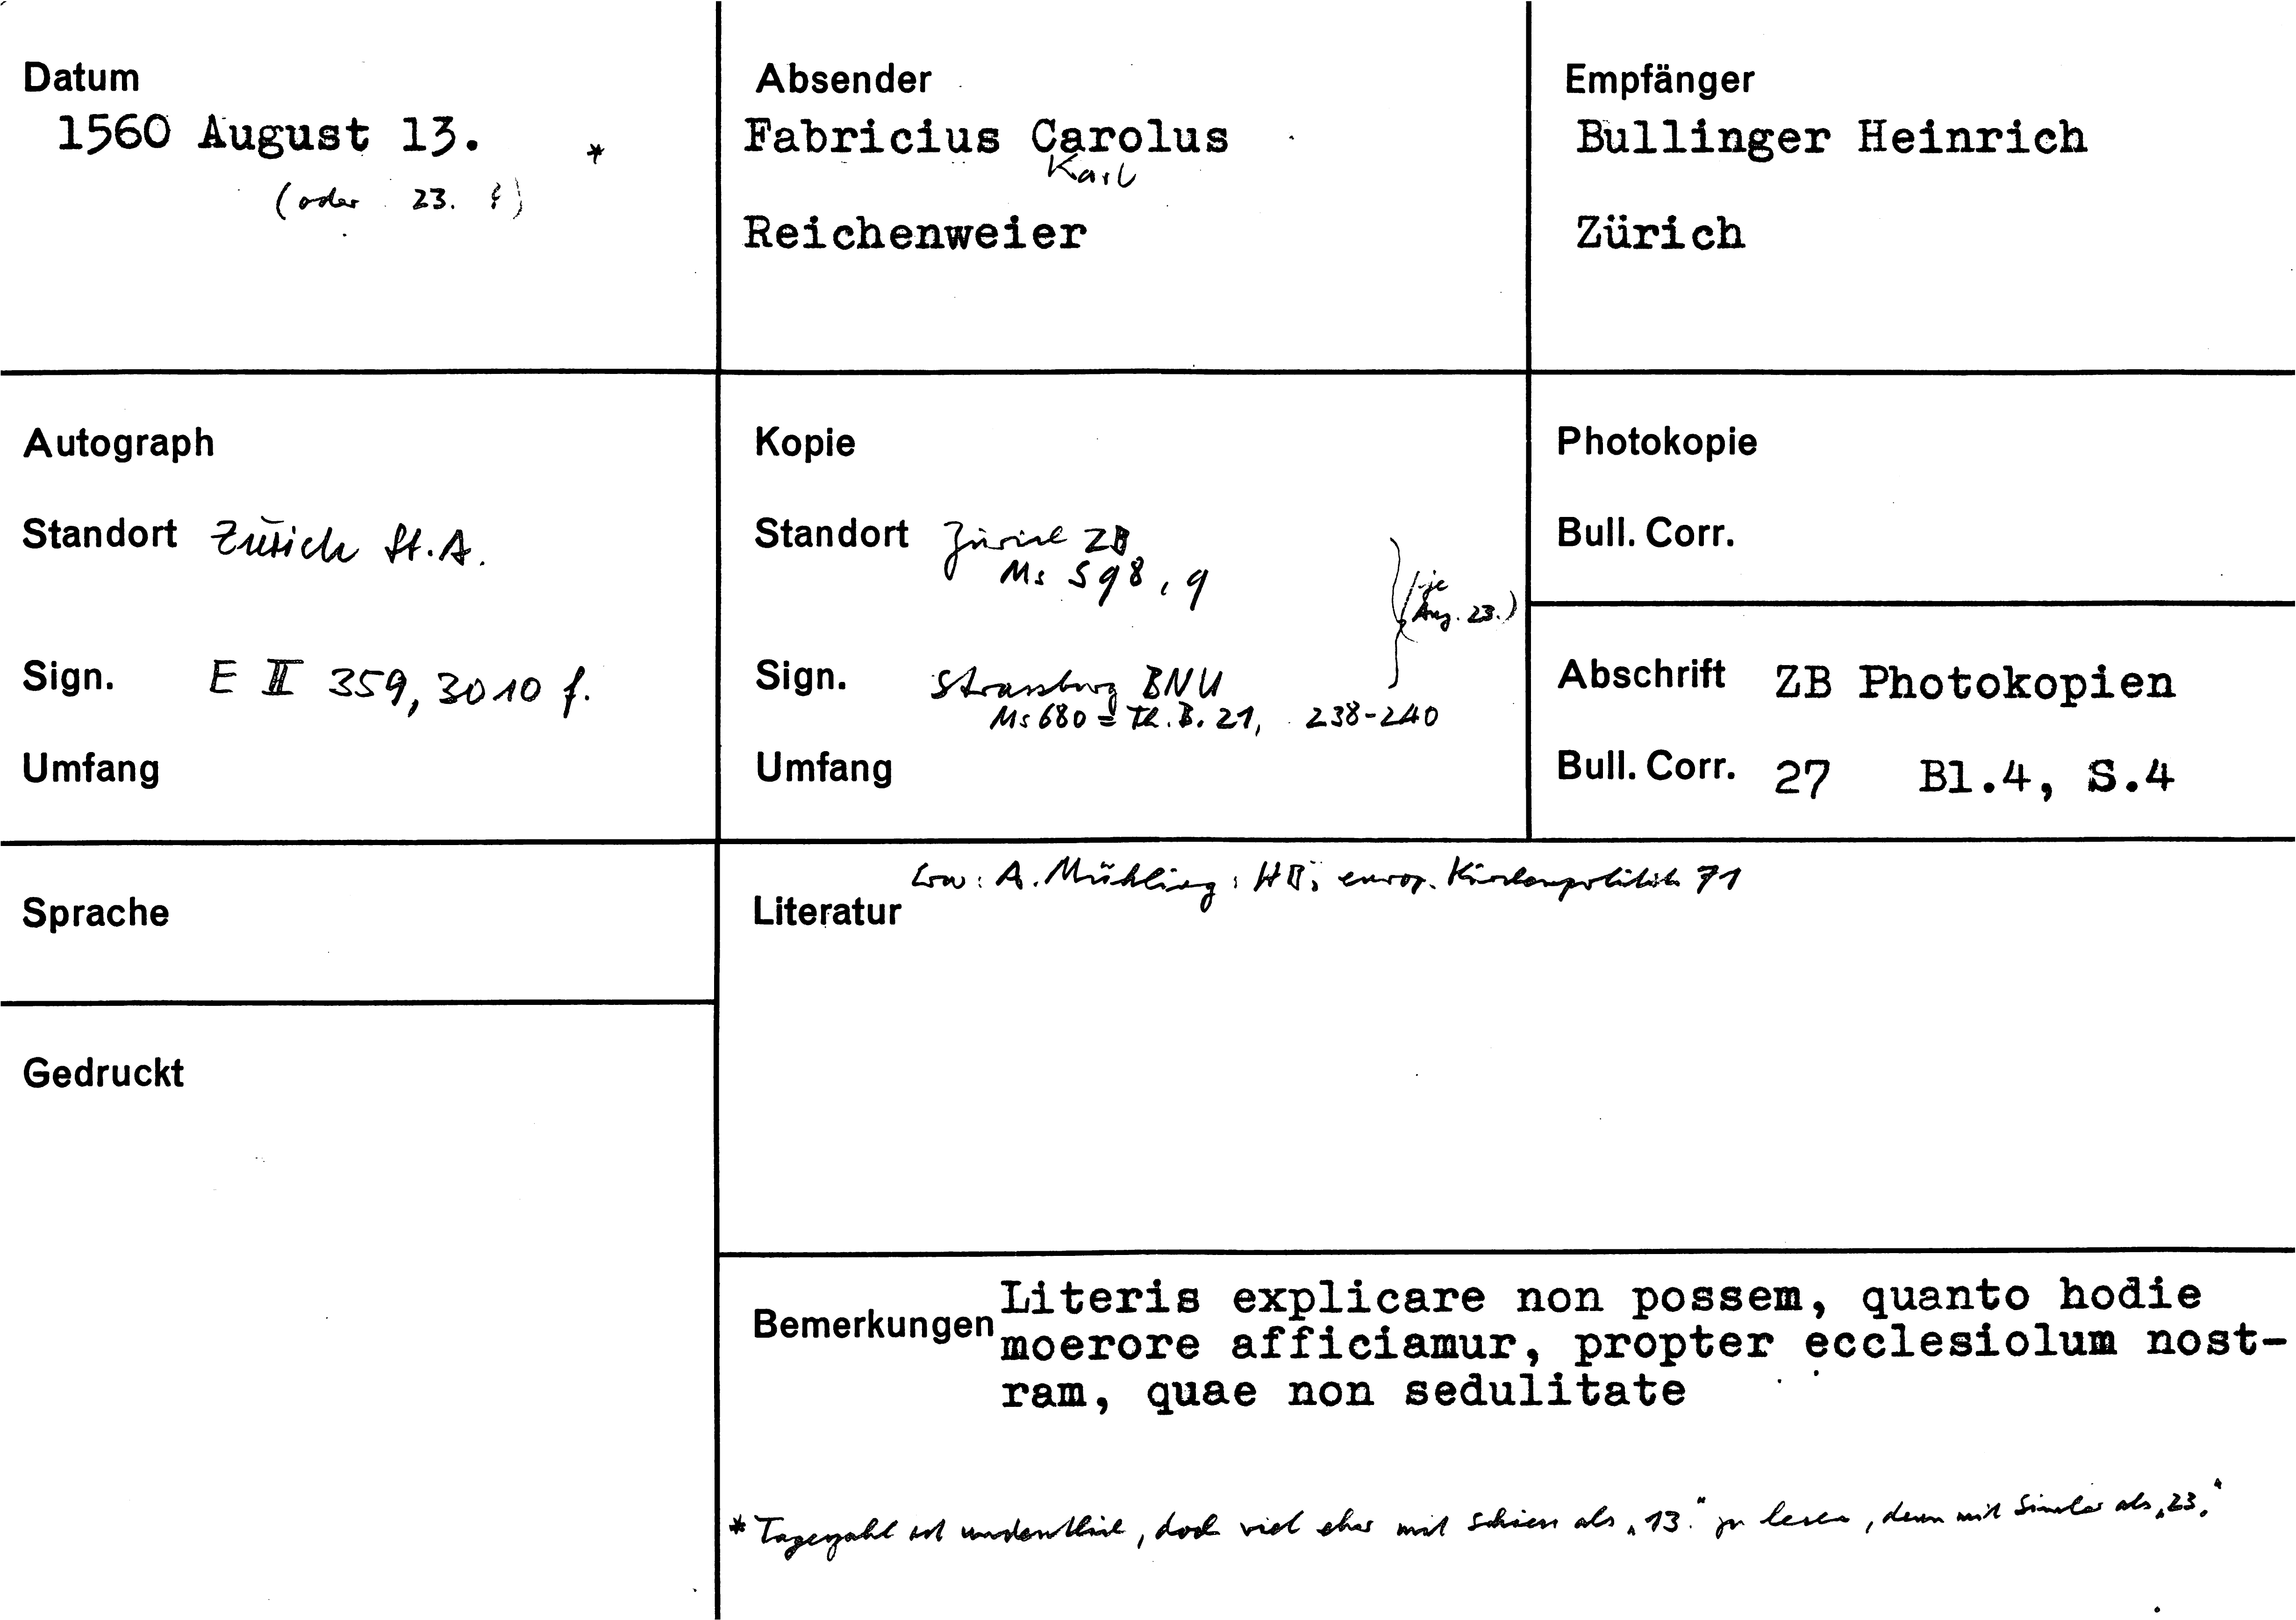 Datum
1560 August 13. *
(oder 23. ?)
Absender
Fabricius Carolus
Karl
Reichenweier
Empfänger
Bullinger Heinrich
Zürich
Autograph
Standort Zürich St.A.
Sign. E II 359, 3010 f.
Umfang
Kopie
Standort Zürich ZB
Ms S 98, 9
(je
Aug. 23.)
Sign. Strassburg BNU
Ms 680 = Th. B. 21, 238-240
Umfang
Photokopie
Bull. Corr.
Abschrift ZB Photokopien
Bull. Corr. 27 Bl.4, S.4
Sprache
Gedruckt
A. Mühling: HB's europ. Kirchenpolitik 71
Literatur
Bemerkungen Literis explicare non possem, quanto hodie
moerore afficiamur, propter ecclesiolum nost-
ram, quae non sedulitate
* Tageszahl ist undeutlich, doch viel eher mit Schiess als „13." zu lesen, denn mit Simler als „23."